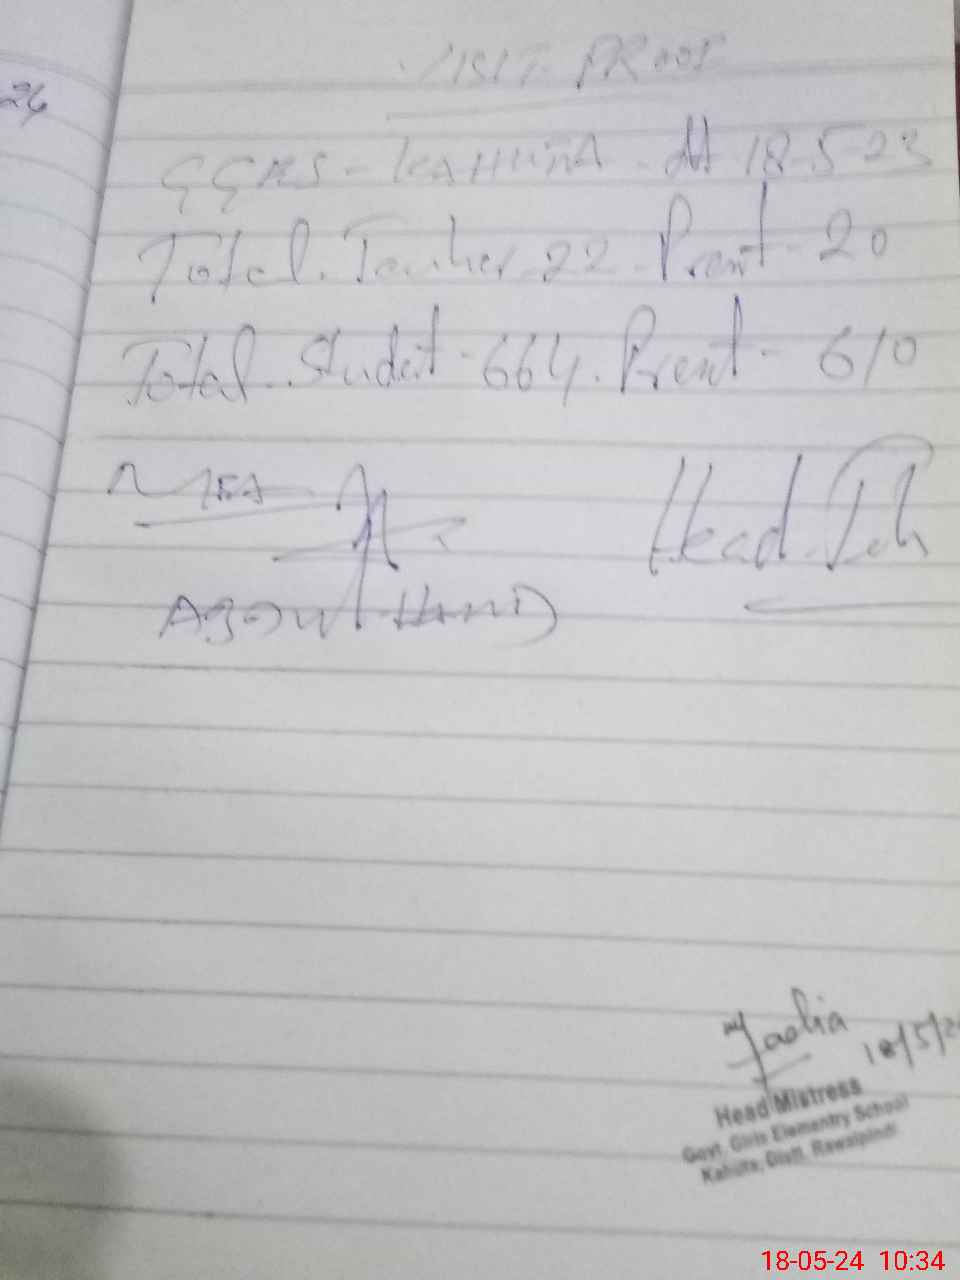 26
VISIT PROOF
GGES - KAHUTA - Dt 18-5-23
Total Teacher 22 - Prent - 20
Total Student - 664. Prent - 610
MEA
Head Tch
18/5/2
Head Mistress
Govt. Girls Elementry School
Kahuta, Distt. Rawalpindi
18-05-24 10:34